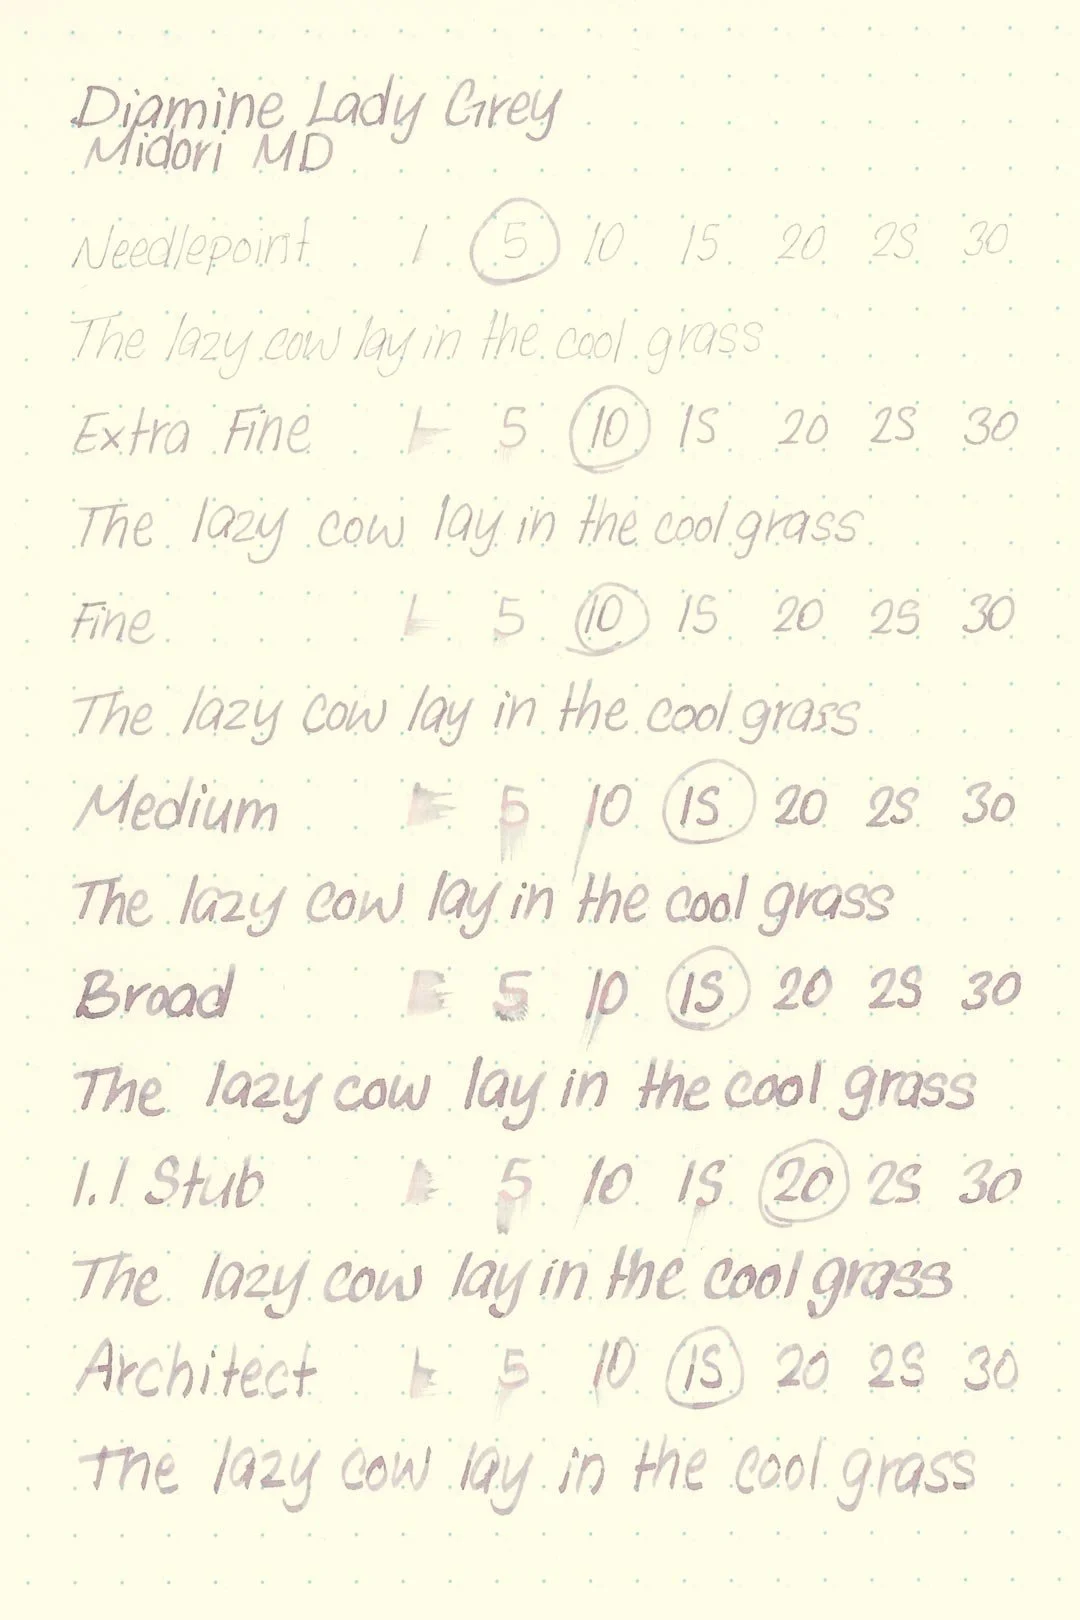 Diamine Lady Grey
Midori MD
Needlepoint 1 5 10 15 20 25 30
The lazy cow lay in the cool grass
Extra Fine 1 5 10 15 20 25 30
The lazy cow lay in the cool grass
Fine 1 5 10 15 20 25 30
The lazy cow lay in the cool grass
Medium 1 5 10 15 20 25 30
The lazy cow lay in the cool grass
Broad 1 5 10 15 20 25 30
The lazy cow lay in the cool grass
1.1 Stub 1 5 10 15 20 25 30
The lazy cow lay in the cool grass
Architect 1 5 10 15 20 25 30
The lazy cow lay in the cool grass